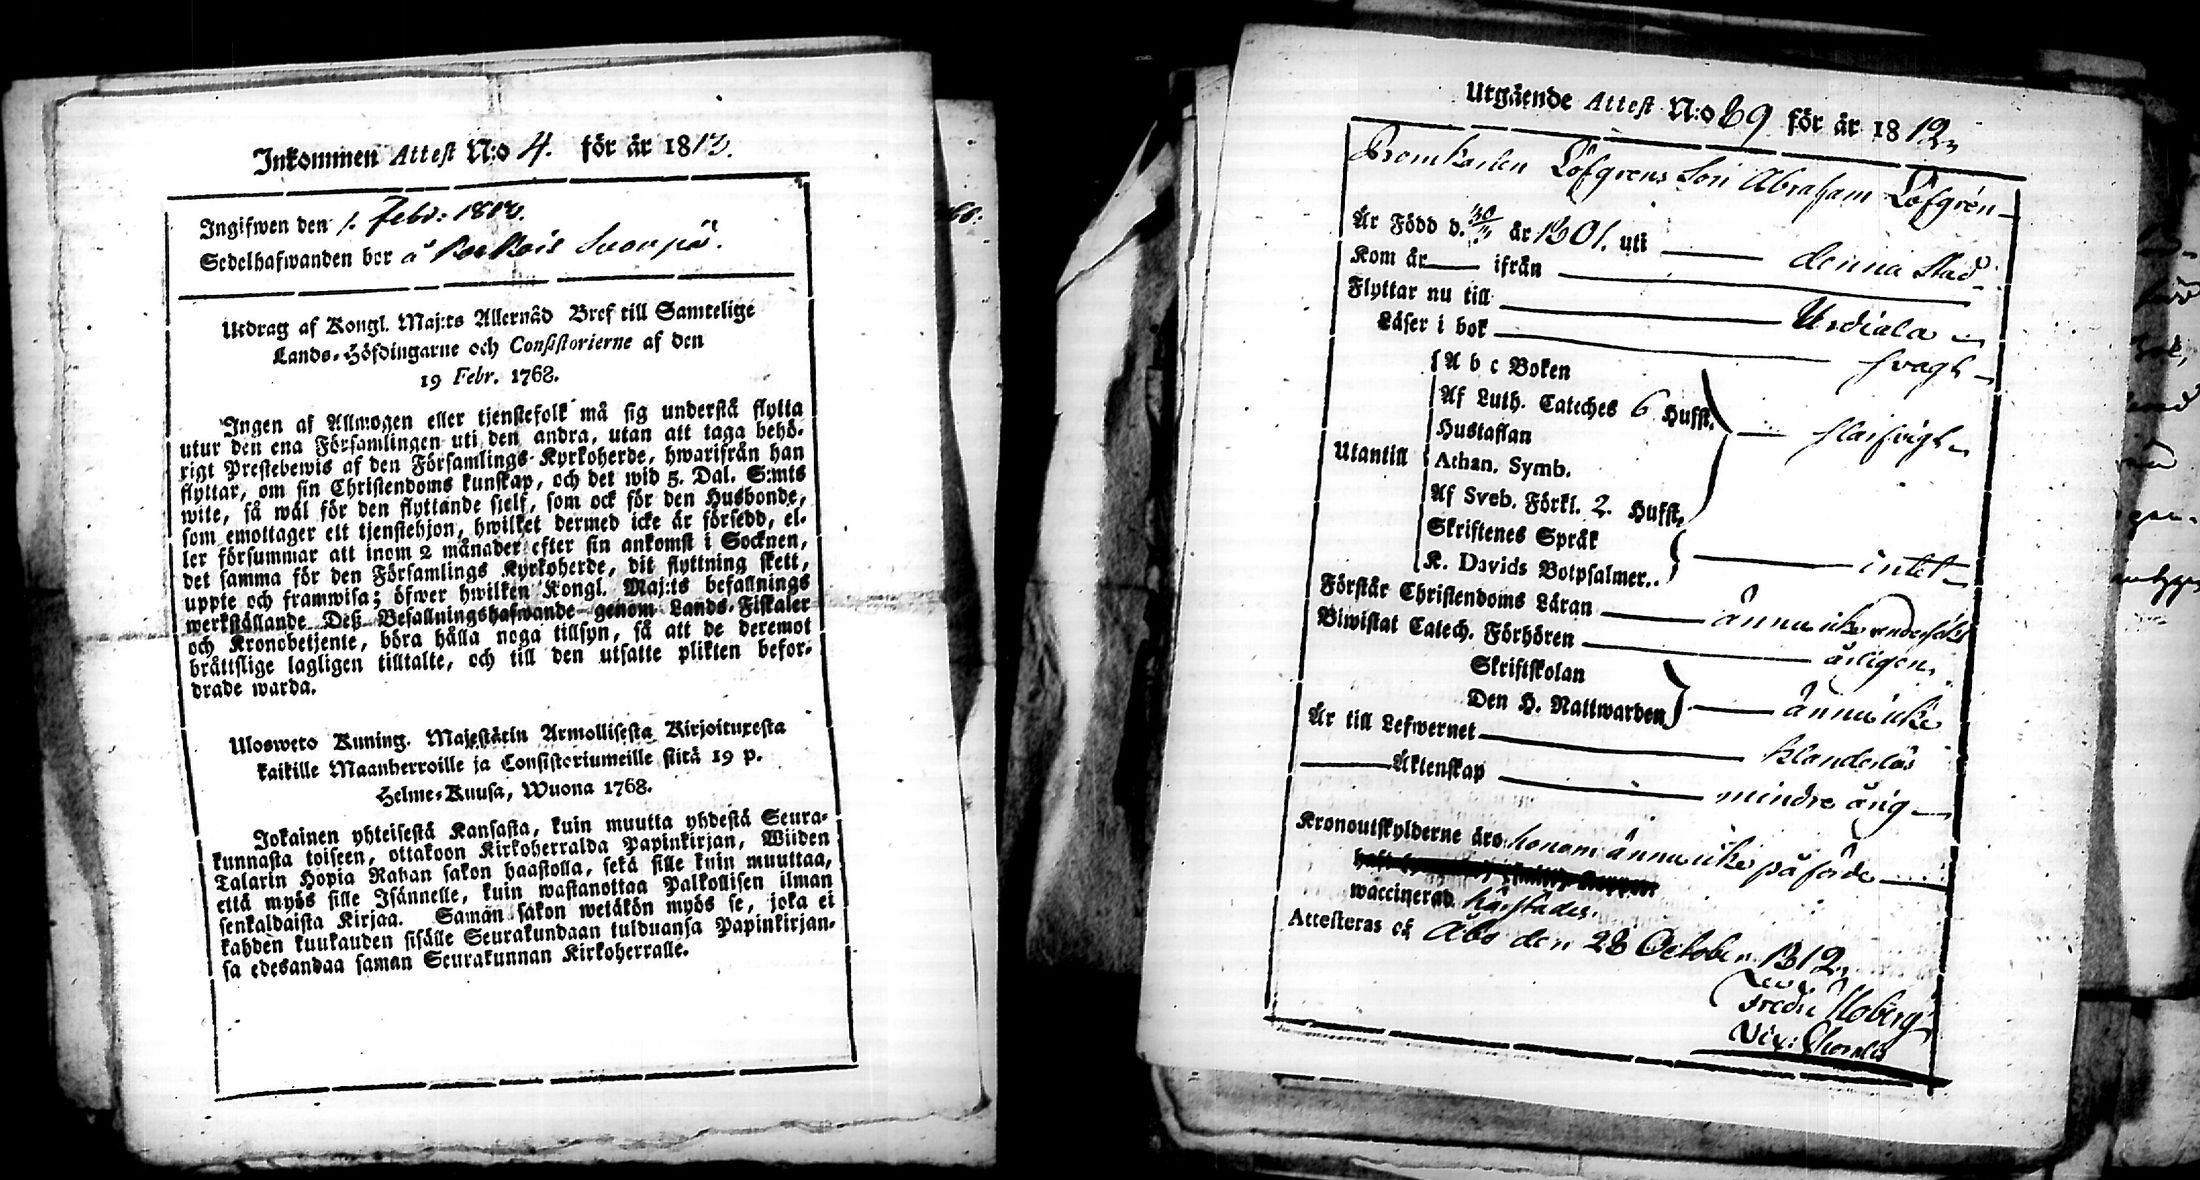 Inkommen Attest N:o 4. för år 1813.
Ingifwen den 1. Febr: 1813.
Sedelhafwanden bor å
Utdrag af Kongl. Maj:ts Allernåd Bref till Samtelige
Lands-Höfdingarne och Consistorierne af den
19 Febr. 1768.
Ingen af Allmogen eller tjenstefolk må sig understå flytta
utur den ena Församlingen uti den andra, utan att taga behö-
rigt Prestebewis af den Församlings Kyrkoherde, hwarifrån han
flyttar, om sin Christendoms kunskap, och det wid 5. Dal. S:mts
wite, så wäl för den flyttande sielf, som ock för den Husbonde,
som emottager ett tjenstehjon, hwilket dermed icke är försedd, el-
ler försummar att inom 2 månader efter sin ankomst i Socknen,
det samma för den Församlings Kyrkoherde, dit flyttning skett,
uppte och framwisa; öfwer hwilken Kongl. Maj:ts befallnings
werkställande Deß Befallningshafwande genom Lands-Fiskaler
och Kronobetjente, böra hålla noga tillsyn, så att de deremot
bråttslige lagligen tilltalte, och till den utsatte plikten befor-
drade warda.
Ulosweto Kuning. Majestätin Armollisesta Kirjoituxesta
kaikille Maanherroille ja Consistoriumeille siitä 19 p.
Helme-Kuusa, Wuona 1768.
Jokainen yhteisestä Kansasta, kuin muutta yhdestä Seura-
kunnasta toiseen, ottakoon Kirkoherralda Papinkirjan, Wiiden
Talarin Hopia Rahan sakon haastolla, sekä sille kuin muuttaa,
että myös sille Isännelle, kuin wastanottaa Palkollisen ilman
senkaldaista Kirjaa. Saman sakon wetäkön myös se, joka ei
kahden kuukauden sisälle Seurakundaan tulduansa Papinkirjan-
sa edesandaa saman Seurakunnan Kirkoherralle.
Utgående Attest N:o 69 för år 1812
Löfgrens Son Abraham Löfgrén
Är Född d. 30/ år 1801. uti denna Stad
Kom år ifrån
Flyttar nu till Urdiala
Läser i bok svagt
Utantill
A b c Boken
Af Luth. Cateches 6 Hufst.
Hustaflan
Athan. Symb.
Af Sveb. Förkl. 2. Hufst.
Skriftenes Språk
K. Davids Botpsalmer.. intet
Förstår Christendoms Läran ännu icke
Biwistat Catech. Förhören årligen
Skriftskolan
Den H. Nattwarden ännu icke
Är till Lefwernet klanderlös
Äktenskap mindre årig
Kronoutskylderne äro honom ännu icke påförde
waccinerad härstädes.
Attesteras af Åbo den 28 October 1812